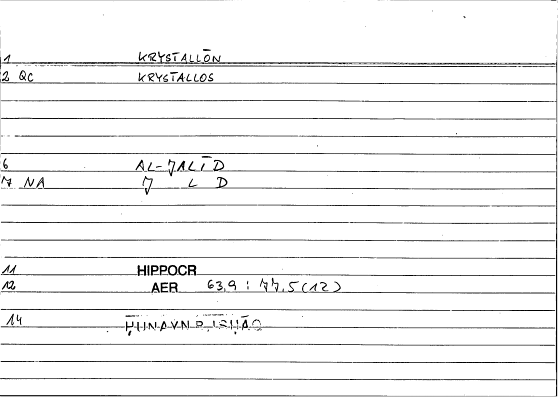 1 KRYSTALLŌN
2 QC KRYSTALLOS
6 AL-JALĪD
7 NA J L D
11 HIPPOCR
12 AER 63,9 : 77,5(12)
14 ḤUNAYN B. ISḤĀQ